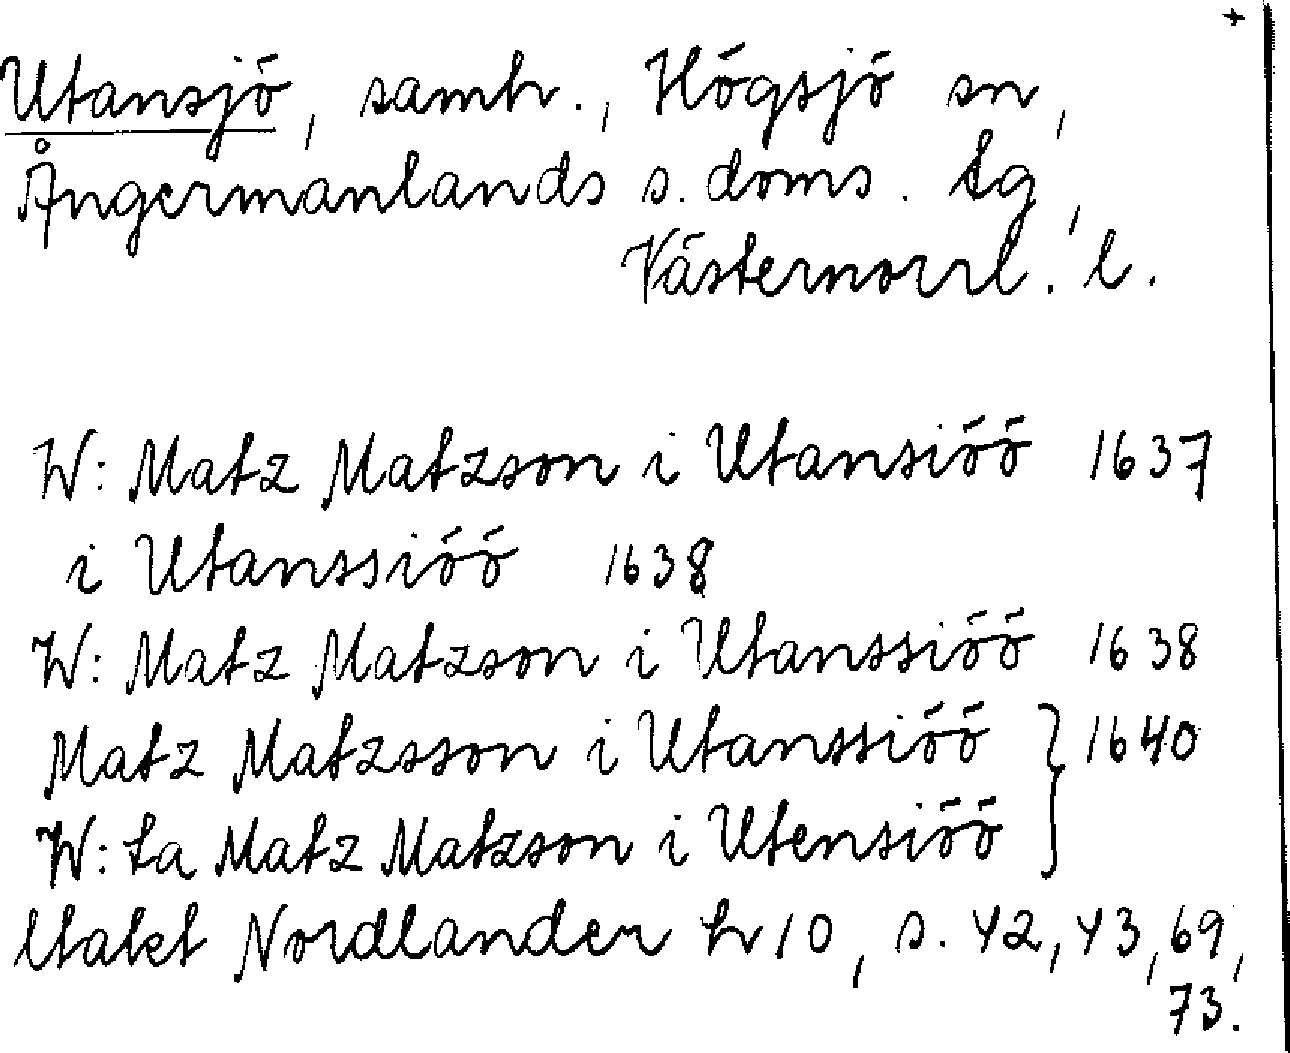 +
Utansjö, samh., Högsjö sn,
Ångermanlands s. doms. tg,
Västernorrl. l.
W: Matz Matzson i Utansiöö 1637
i Utanssiöö 1638
W: Matz Matzson i Utanssiöö 1638
Matz Matzsson i Utanssiöö } 1640
W: ta Matz Matzson i Utensiöö
Utakt Nordlander h 10, s. 42, 43, 69,
73.